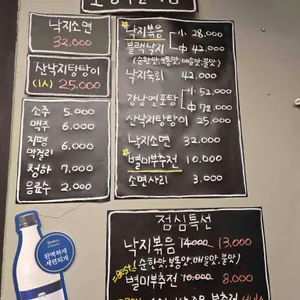 낙지소면
32.000
산낙지탕탕이
(1人) 25.000
소주 5.000
맥주 6.000
지평
막걸리 6.000
청하 7.000
음료수 2.000
낙지볶음 小 28.000
블랙낙지 中 42.000
(순한맛, 보통맛, 매운맛, 불맛)
낙지숙회 42.000
강남연포탕 小 52.000
中 72.000
산낙지탕탕이 25.000
낙지소면 32.000
별미부추전 10.000
소면사리 3.000
점심특선
낙지볶음 14.000 13.000
(순한맛, 보통맛, 매운맛, 불맛)
BEST
별미부추전 10.000 8.000
완벽하게
새로워진